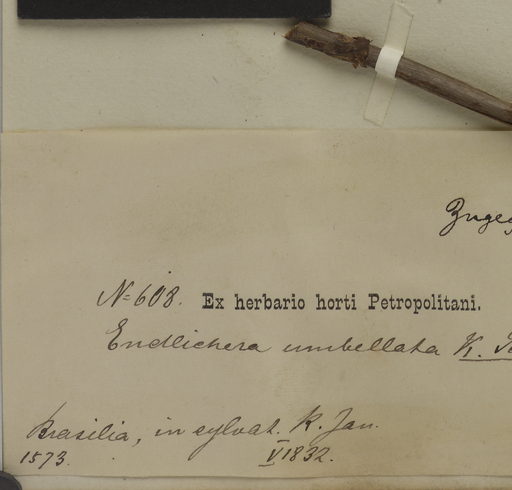 Nº 608. Ex herbario horti Petropolitani.
Endlichera umbellata K.
Brasilia, in sylvat. R. Jan.
1573. V 1832.